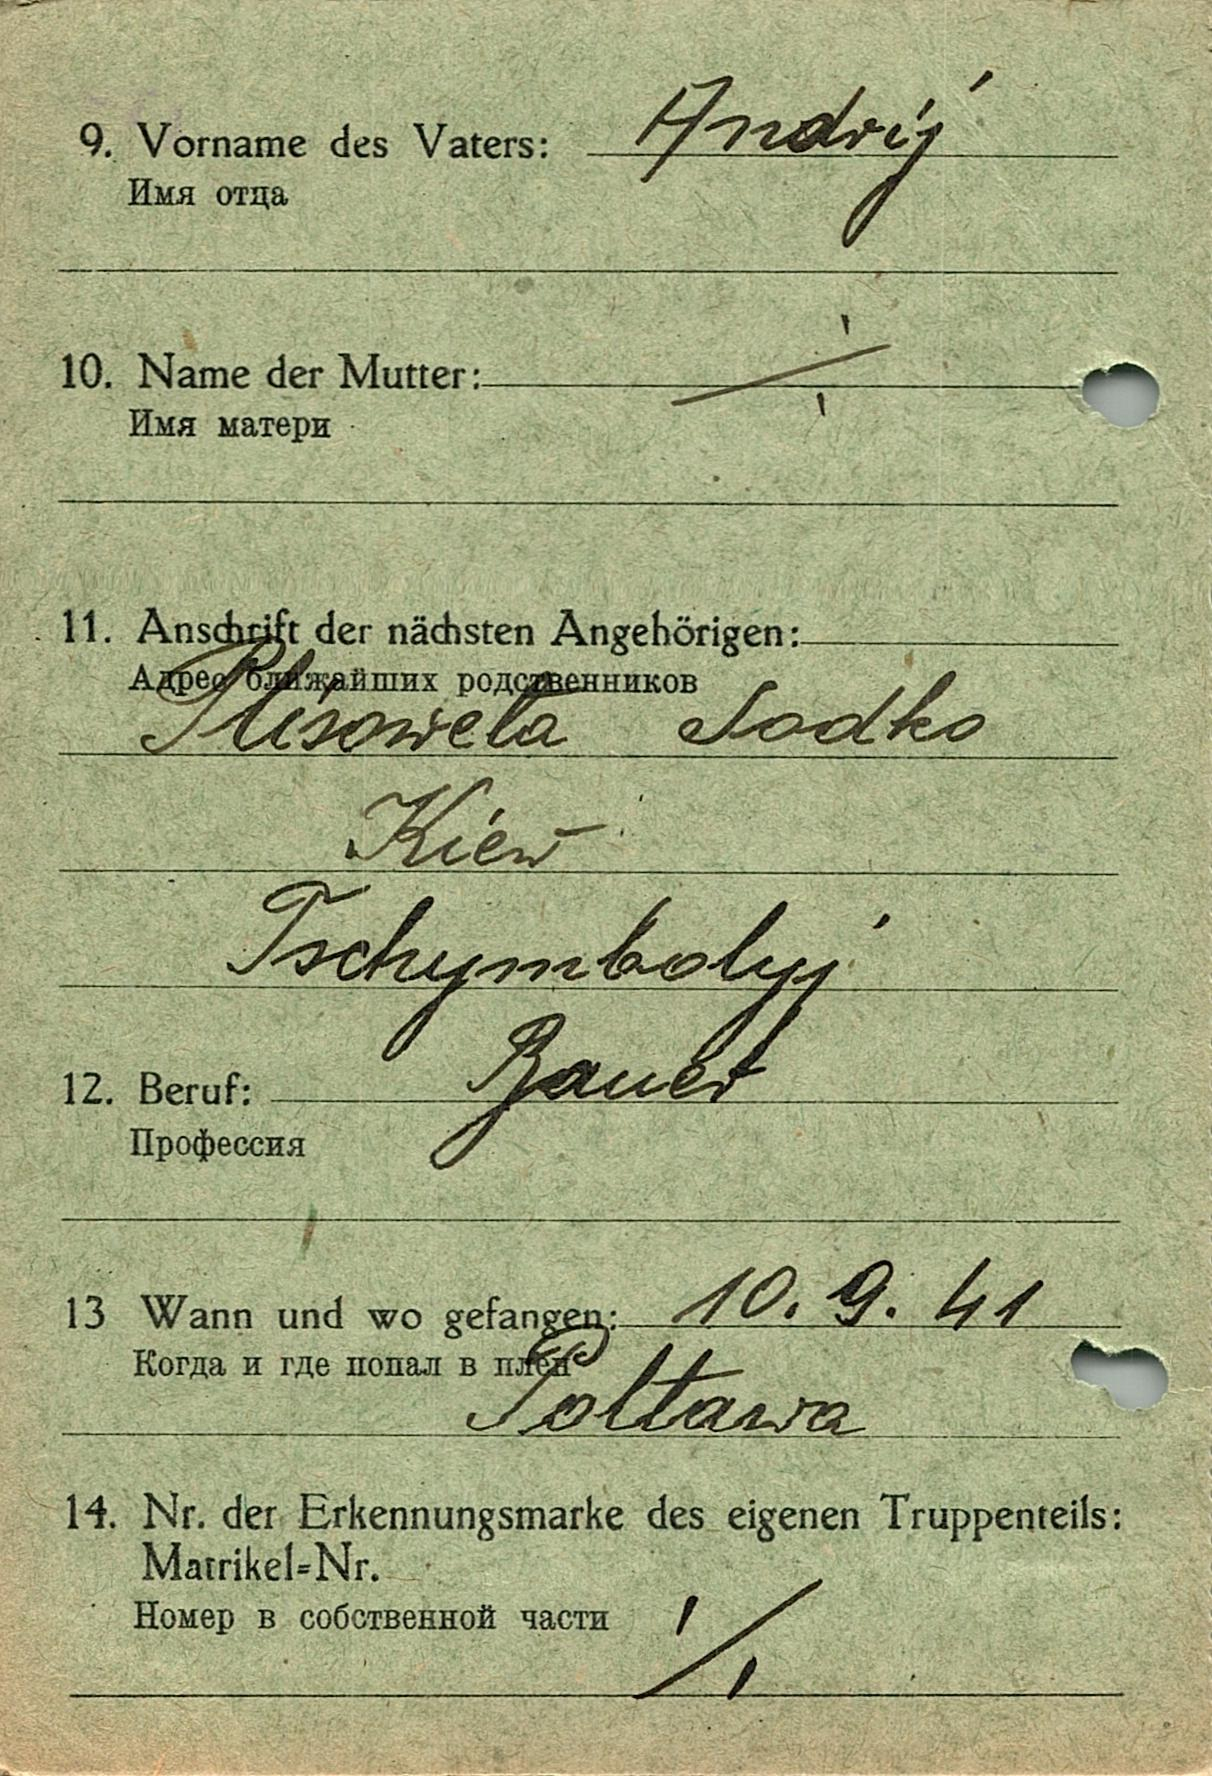 9. Vorname des Vaters: Andrij
Имя отца
10. Name der Mutter: ./.
Имя матери
11. Anschrift der nächsten Angehörigen:
Адрес ближайших родственников
Sodko
Kiew
Tschymbolyj
12. Beruf: Bauer
Профессия
13 Wann und wo gefangen: 10. 9. 41
Когда и где попал в плен
Poltawa
14. Nr. der Erkennungsmarke des eigenen Truppenteils:
Matrikel=Nr.
Номер в собственной части ./.